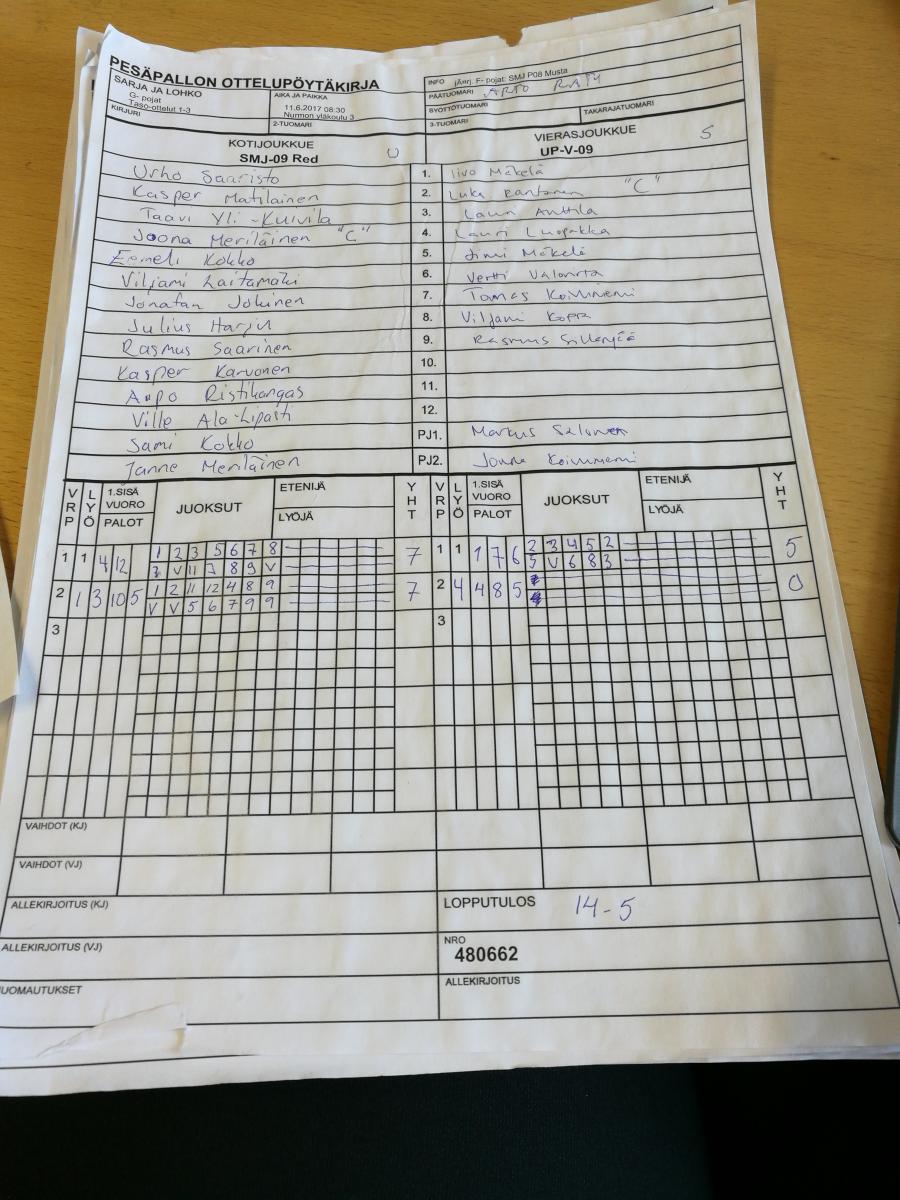 PESÄPALLON OTTELUPÖYTÄKIRJA
SARJA JA LOHKO
G- pojat
Taso-ottelut 1-3
KIRJURI
AIKA JA PAIKKA
11.6.2017 08:30
Nurmon yläkoulu 3
2-TUOMARI
INFO (Äärj. F- pojat: SMJ P08 Musta
PÄÄTUOMARI ARTO RÄTY
SYÖTTÖTUOMARI TAKARAJATUOMARI
3-TUOMARI
KOTIJOUKKUE U
SMJ-09 Red
VIERASJOUKKUE S
UP-V-09
Urho Saaristo 1. Iivo Mäkelä
Kasper Matilainen 2. Luka Rantanen "C"
Taavi Yli-Kuivila 3. Lauri Anttila
Joona Meriläinen "C" 4. Lauri
Eemeli Kokko 5. Jimi Mäkelä
Viljami Laitamäki 6. Vertti
Jonatan Jokinen 7. Tomas Koivuniemi
Julius Harju 8. Viljami Koppa
Rasmus Saarinen 9. Rasmus
Kasper Karvonen 10.
Aapo Ristikangas 11.
Ville Ala-Lipasti 12.
Sami Kokko PJ1. Markus Salonen
Janne Meriläinen PJ2. Jonne Koivuniemi
VRP LYÖ 1.SISÄ VUORO PALOT JUOKSUT ETENIJÄ LYÖJÄ YHT VRP LYÖ 1.SISÄ VUORO PALOT JUOKSUT ETENIJÄ LYÖJÄ YHT
1 1 4 12 1 2 3 5 6 7 8 7 1 1 1 7 6 2 3 4 5 2 5
3 V 11 7 8 9 V 5 V 6 8 3
2 1 3 10 5 1 2 11 12 4 8 9 7 2 4 4 8 5 0
V V 5 6 7 9 9
3 3
VAIHDOT (KJ)
VAIHDOT (VJ)
ALLEKIRJOITUS (KJ) LOPPUTULOS 14-5
ALLEKIRJOITUS (VJ) NRO
480662
UOMAUTUKSET ALLEKIRJOITUS